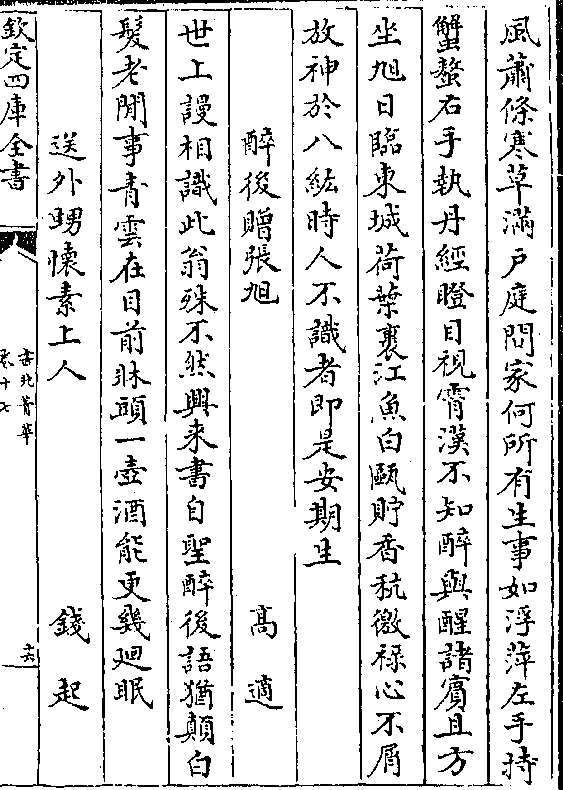 風蕭條寒草滿戶庭問家何所有生事如浮萍左手持
蟹螯右手執丹經瞪目視霄漢不知醉與醒諸賓且方
坐旭日臨東城荷葉裹江魚白甌貯香秔微禄心不屑
放神於八紘時人不識者即是安期生
醉後贈張旭　高適
世上謾相識此翁殊不然興來書自聖醉後語猶顛白
髮老閒事青雲在目前牀頭一壺酒能更幾廻眠
送外甥懷素上人　錢起
欽定四庫全書
卷十七
十六